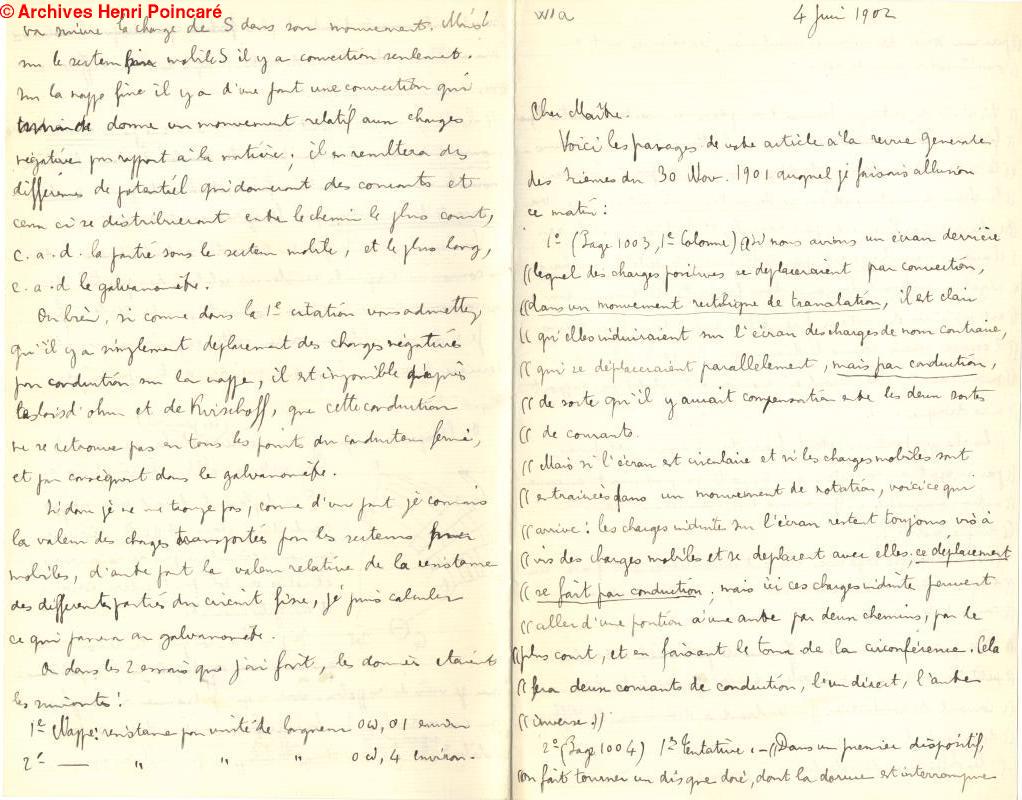 © Archives Henri Poincaré
va suivre la charge de S dans son mouvement. Mais
sur le secteur mobile S il y a convection seulement.
Sur la nappe fixe il y a d'une part une convection qui
donne un mouvement relatif aux charges
négatives par rapport à la matière ; il en resultera des
différences de potentiel qui donneront des courants et
ceux ci se distribueront entre le chemin le plus court,
c. a. d. la partie sous le secteur mobile, et le plus long,
c. a. d le galvanomètre.
Ou bien, si comme dans la 1e citation vous admettez
qu'il y a simplement deplacement des charges négatives
par conduction sur la nappe, il est impossible d'après
les lois d'ohm et de Kirschoff, que cette conduction
ne se retrouve pas en tous les points du conducteur fermé,
et par conséquent dans le galvanomètre.
Si donc je ne me trompe pas, comme d'une part je connais
la valeur des charges transportées par les secteurs
mobiles, d'autre part la valeur relative de la resistance
des differentes parties du circuit fixe, je puis calculer
ce qui passera au galvanomètre.
Or dans les 2 essais que j'ai fait, les données etaient
les suivantes :
1e Nappe : resistance par unité de longueur 0 ω, 01 environ
2e — " " " 0 ω, 4 environ.
4 Juin 1902
Cher Maître.
Voici les passages de votre article à la revue Generale
des Sciences du 30 Nov. 1901 auquel je faisais allusion
ce matin :
1º (Page 1003, 1e Colonne) Si nous avions un écran derrière
(( lequel des charges positives se deplaceraient par convection,
(( dans un mouvement rectiligne de translation, il est clair
(( qu'elles induiraient sur l'écran des charges de nom contraire,
(( qui se déplaceraient parallelement, mais par conduction,
(( de sorte qu'il y aurait compensation entre les deux sortes
(( de courants.
(( Mais si l'écran est circulaire et si les charges mobiles sont
(( entrainées dans un mouvement de rotation, voici ce qui
(( arrive : les charges induites sur l'écran restent toujours vis à
(( vis des charges mobiles et se deplacent avec elles, ce déplacement
(( se fait par conduction ; mais ici ces charges induites peuvent
(( aller d'une position à une autre par deux chemins, par le
(( plus court, et en faisant le tour de la circonférence. Cela
(( fera deux courants de conduction, l'un direct, l'autre
(( inverse ))
2º (Page 1004) 1re Tentative . – (( Dans un premier dispositif,
on fait tourner un disque doré, dont la dorure est interrompue